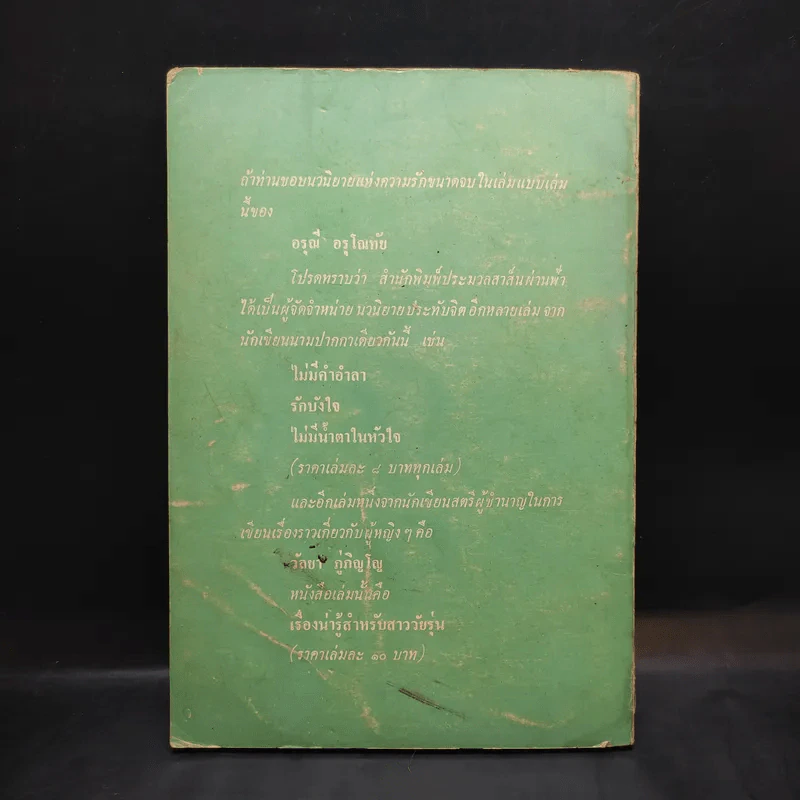 ถ้าท่านชอบนวนิยายแห่งความรักขนาดจบในเล่มแบบเล่ม
นี้ของ
อรุณี อรุโณทัย
โปรดทราบว่า สำนักพิมพ์ประมวลสาส์นผ่านฟ้า
ได้เป็นผู้จัดจำหน่าย นวนิยายประทับจิต อีกหลายเล่ม จาก
นักเขียนนามปากกาเดียวกันนี้ เช่น
ไม่มีคำอำลา
รักบังใจ
ไม่มีน้ำตาในหัวใจ
(ราคาเล่มละ ๘ บาททุกเล่ม)
และอีกเล่มหนึ่งจากนักเขียนสตรีผู้ชำนาญในการ
เขียนเรื่องราวเกี่ยวกับผู้หญิง ๆ คือ
วัลยา ภู่ภิญโญ
หนังสือเล่มนั้นคือ
เรื่องน่ารู้สำหรับสาววัยรุ่น
(ราคาเล่มละ ๑๐ บาท)